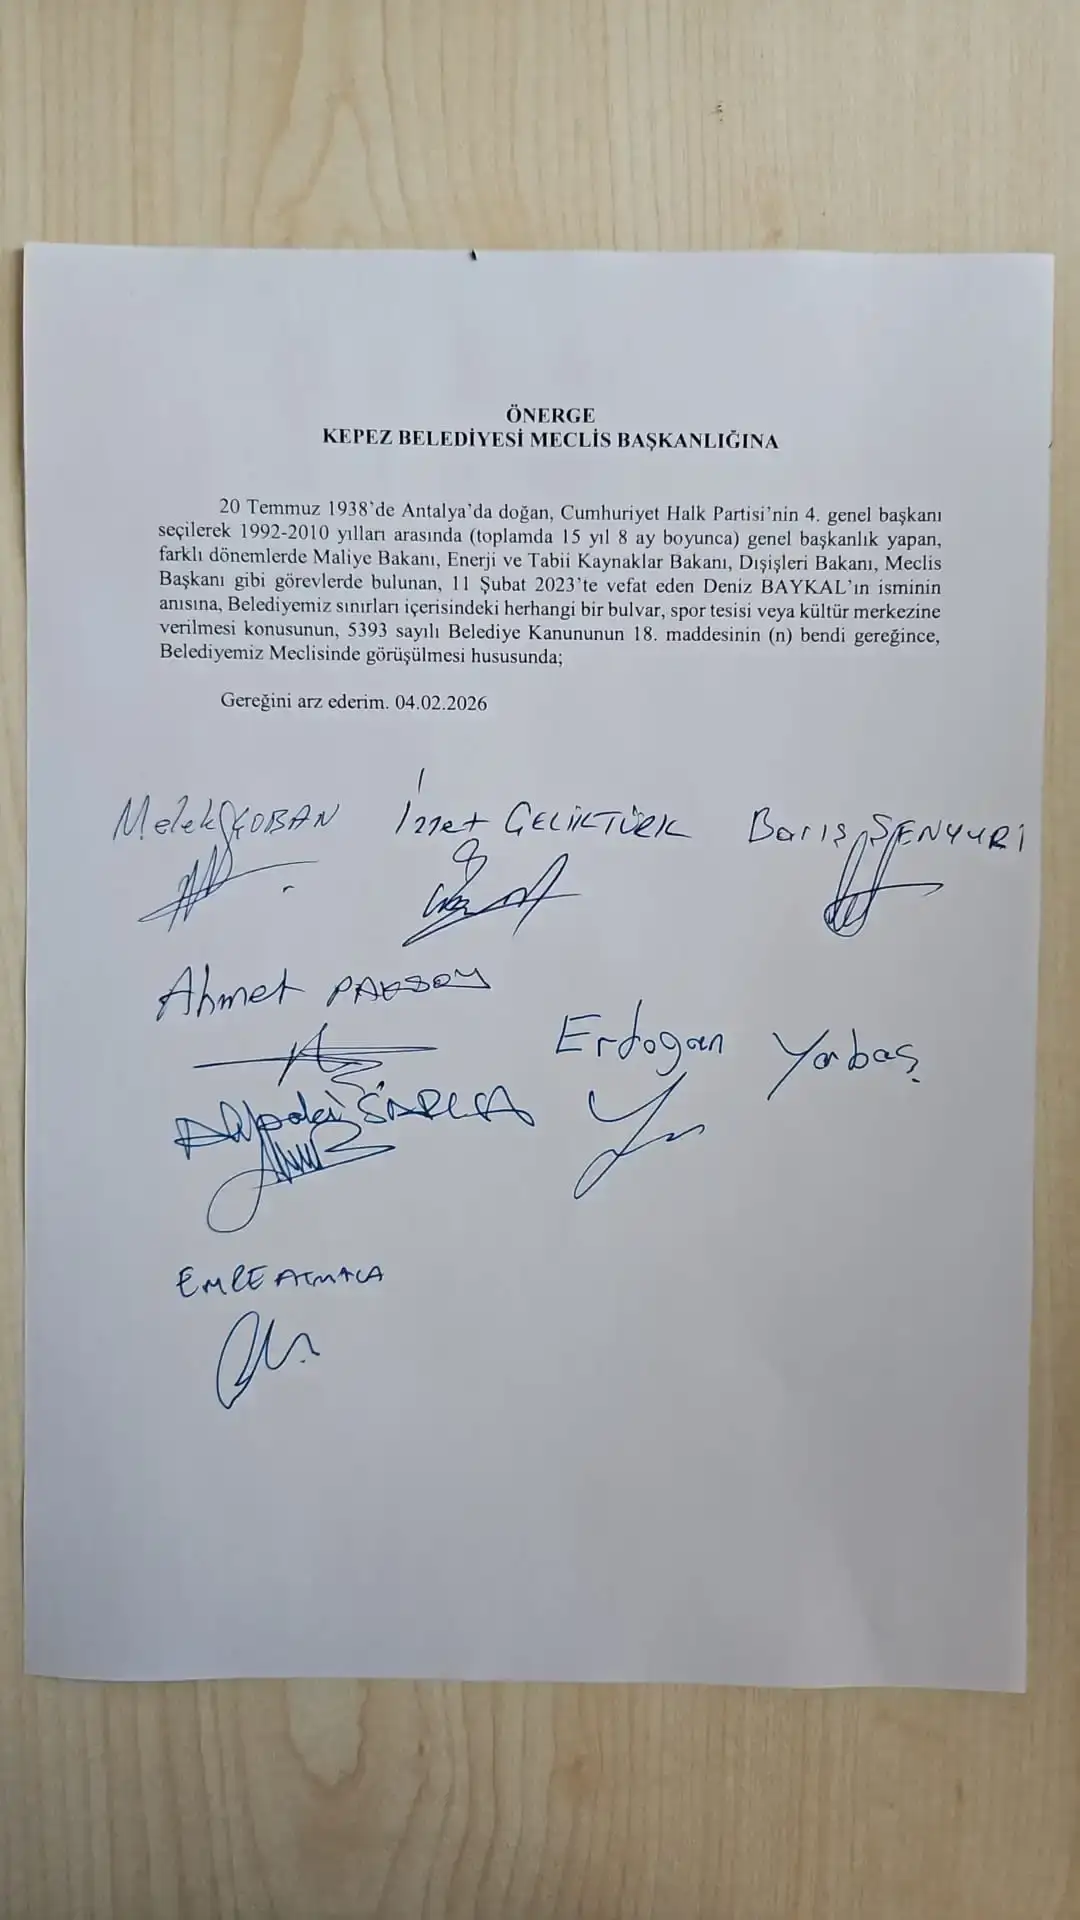 ÖNERGE
KEPEZ BELEDİYESİ MECLİS BAŞKANLIĞINA
20 Temmuz 1938'de Antalya'da doğan, Cumhuriyet Halk Partisi'nin 4. genel başkanı
seçilerek 1992-2010 yılları arasında (toplamda 15 yıl 8 ay boyunca) genel başkanlık yapan,
farklı dönemlerde Maliye Bakanı, Enerji ve Tabii Kaynaklar Bakanı, Dışişleri Bakanı, Meclis
Başkanı gibi görevlerde bulunan, 11 Şubat 2023'te vefat eden Deniz BAYKAL'ın isminin
anısına, Belediyemiz sınırları içerisindeki herhangi bir bulvar, spor tesisi veya kültür merkezine
verilmesi konusunun, 5393 sayılı Belediye Kanununun 18. maddesinin (n) bendi gereğince,
Belediyemiz Meclisinde görüşülmesi hususunda;
Gereğini arz ederim. 04.02.2026
Melek ÇOBAN İzzet ÇELİKTÜRK Barış ŞENYURİ
Ahmet PAKSOY
Erdogan Yabaş
EMRE ATMACA